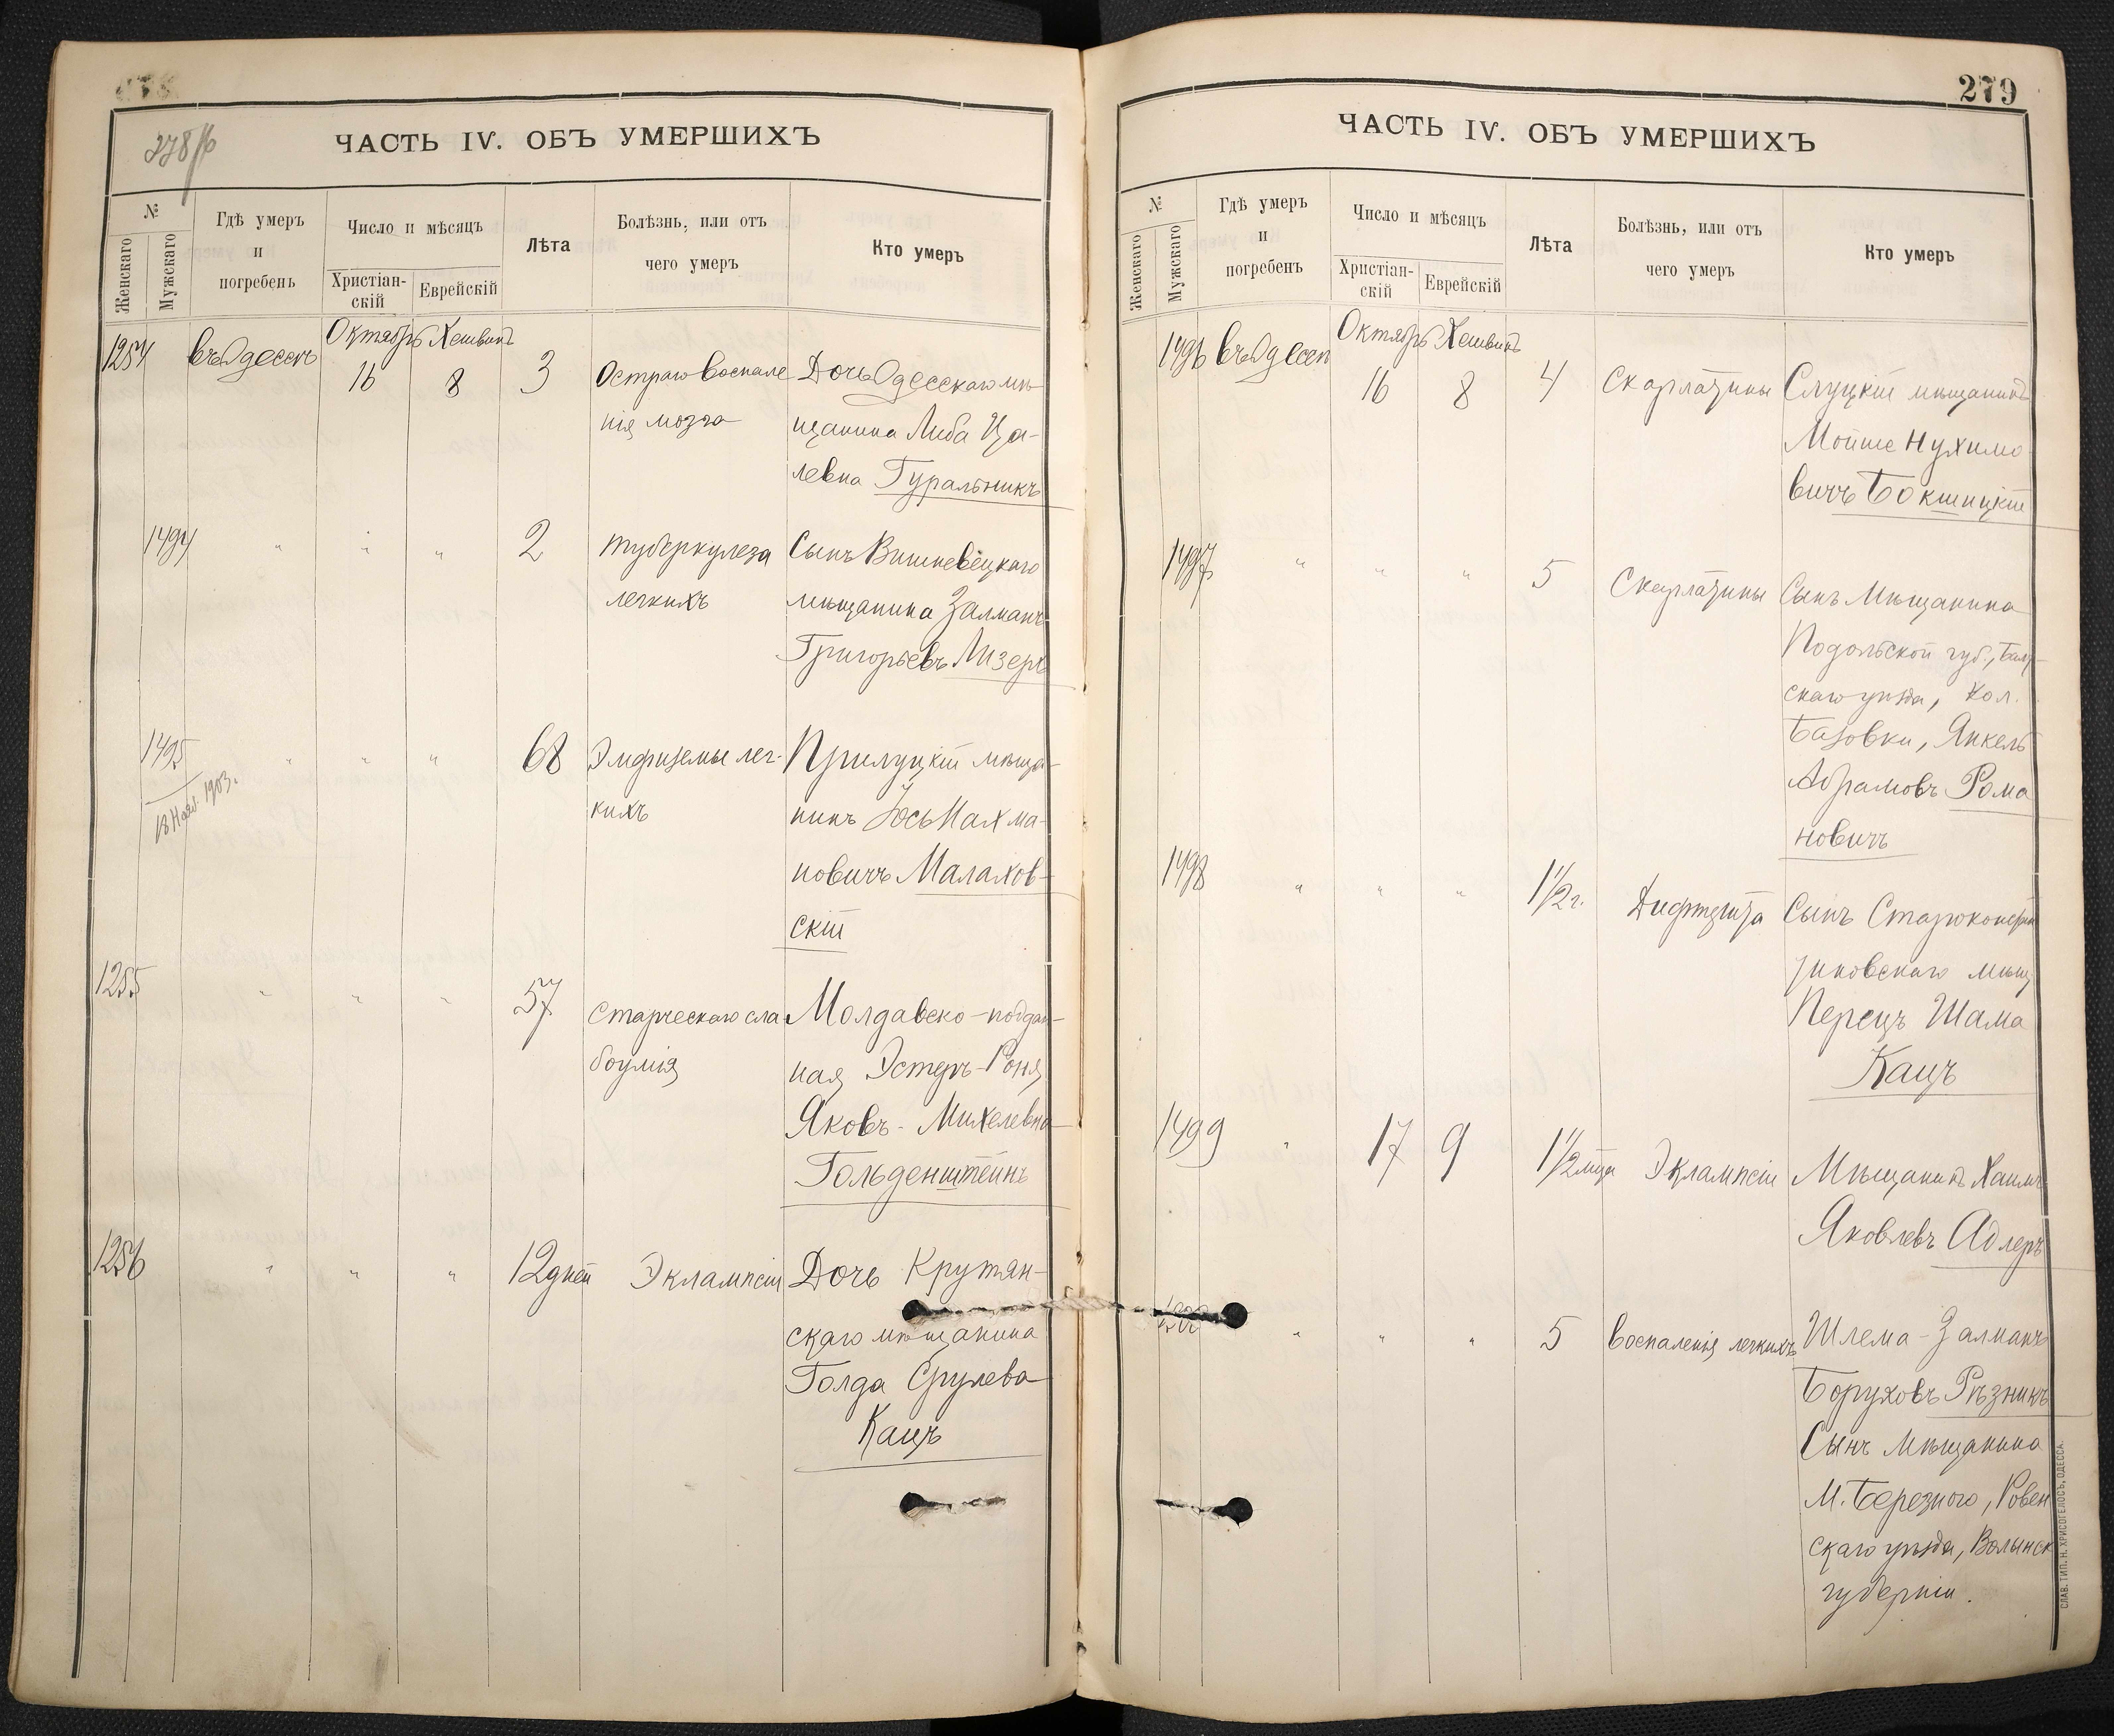 278 об
ЧАСТЬ IV. ОБЪ УМЕРШИХЪ
№
Женскаго
Мужскаго
Гдѣ умеръ
и
погребенъ
Число и мѣсяцъ
Христіан-
скій
Еврейскій
Лѣта
Болѣзнь, или отъ
чего умеръ
Кто умеръ
Октябрь Хешвинъ
1254 въ Одессѣ 16 8 3 Остраго воспале Дочь Одесскаго мѣ-
нія мозга щанина Либа Ца-
левна Гуральникъ
1494 " " " 2 туберкулеза Сынъ Вишневецкаго
легкихъ мѣщанина Залманъ
Григорьевъ Лизеръ
1495 " " " 68 Эмфиземы лег- Прилуцкій мѣща-
18 Нояб. 1903.
кихъ нинъ Іось Нахма-
новичъ Малахов-
скій
1255 " " " 57 Старческаго сла Молдавско-поддан-
боумія ная Эстеръ-Роня
Яковъ-Михелевна
Гольденштейнъ
1256 " " " 12 дней Эклампсіи Дочь Крутян-
скаго мѣщанина
Голда Срулева
Кацъ
279
ЧАСТЬ IV. ОБЪ УМЕРШИХЪ
№
Женскаго
Мужскаго
Гдѣ умеръ
и
погребенъ
Число и мѣсяцъ
Христіан-
скій
Еврейскій
Лѣта
Болѣзнь, или отъ
чего умеръ
Кто умеръ
Октябрь Хешвинъ
1496 въ Одессѣ 16 8 4 Скарлатины Слуцкій мѣщанинъ
Мойше Нухимо
вичъ Бокшицкій
1497 " " " 5 Скарлатины Сынъ Мѣщанина
Подольской губ., Балт-
скаго уѣзда, кол.
Янкель
Абрамовъ Рома
новичъ
1498 " " " 1 1/2 г. Дифтерита Сынъ
мѣщ
Перецъ Шама
Кацъ
1499 " 17 9 1 1/2 мца Эклампсіи Мѣщанинъ Хаимъ
Яковлевъ Адлеръ
1500 " " " 5 Воспаленія легкихъ Шлема-Залманъ
Боруховъ Рѣзникъ
Сынъ Мѣщанина
М. Березного, Ровен
скаго уѣзда, Волынск
губерніи.
СЛАВ. ТИП. Н. ХРИСОГЕЛОСЪ, ОДЕССА.